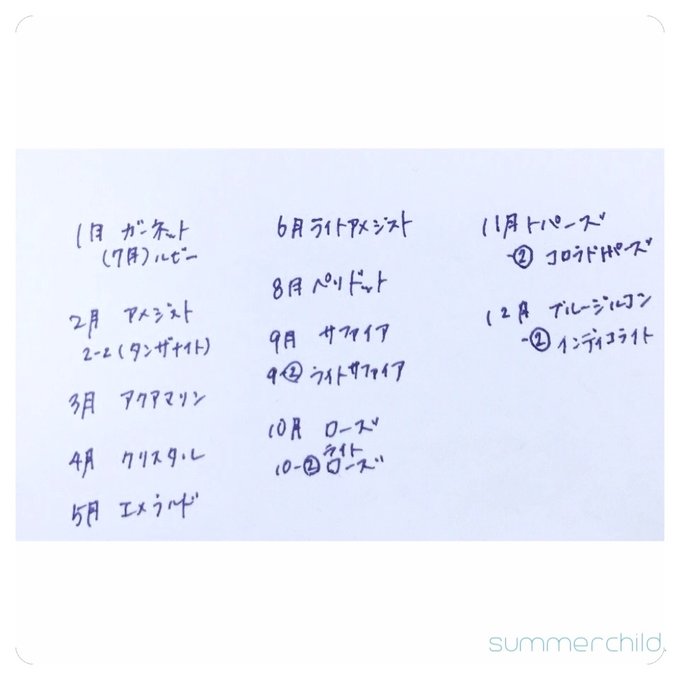 1月 ガーネット
(7月)ルビー
2月 アメジスト
2-2(タンザナイト)
3月 アクアマリン
4月 クリスタル
5月 エメラルド
6月 ライトアメジスト
8月 ペリドット
9月 サファイア
9-② ライトサファイア
10月 ローズ
ライト
10-② ローズ
11月 トパーズ
-② コロラドトパーズ
12月 ブルージルコン
-② インディコライト
summerchild.